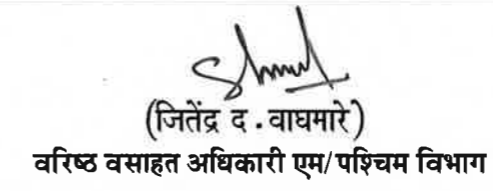 (जितेंद्र द. वाघमारे)
वरिष्ठ वसाहत अधिकारी एम/पश्चिम विभाग